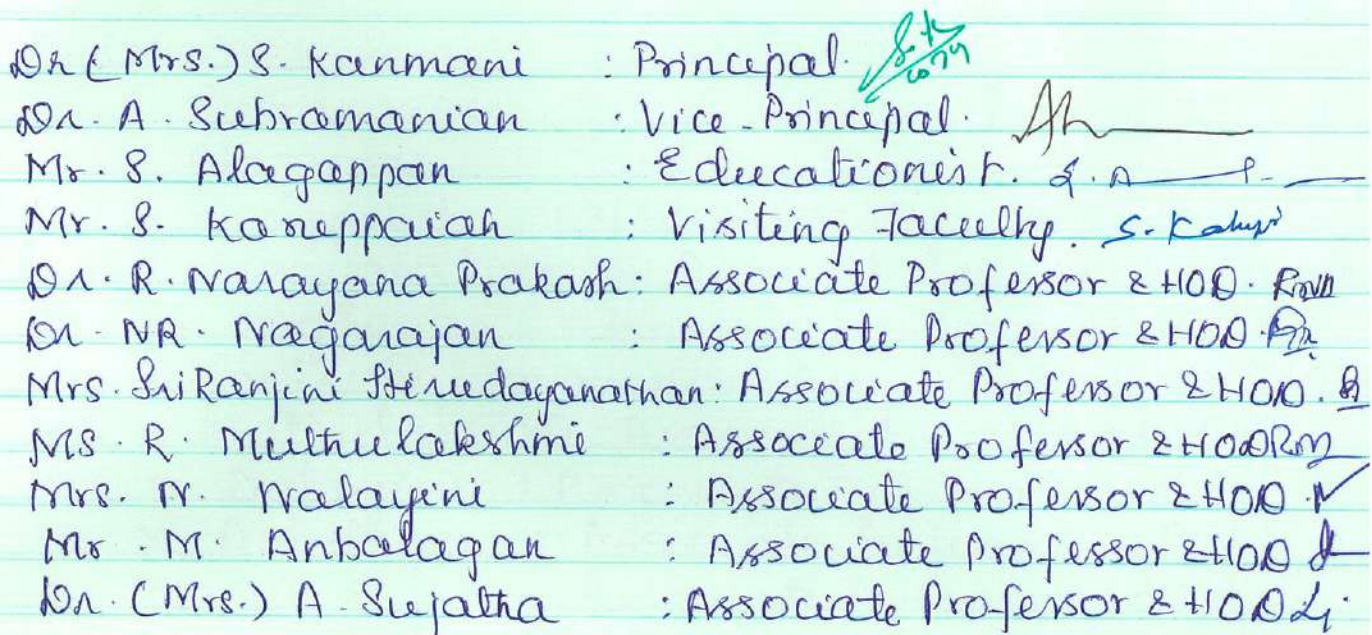 Dr (Mrs.) S. Kanmani : Principal.
Dr. A. Subramanian : Vice-Principal.
Mr. S. Alagappan : Educationist. S. A
Mr. S. Karuppaiah : Visiting Faculty. S. Karupp
Dr. R. Narayana Prakash : Associate Professor & HOD.
Dr. NR. Nagarajan : Associate Professor & HOD.
Mrs. SriRanjini Hirudayanathan : Associate Professor & HOD.
Ms. R. Muthulakshmi : Associate Professor & HOD
Mrs. N. Nalayini : Associate Professor & HOD.
Mr. M. Anbalagan : Associate Professor & HOD
Dr. (Mrs.) A. Sujatha : Associate Professor & HOD